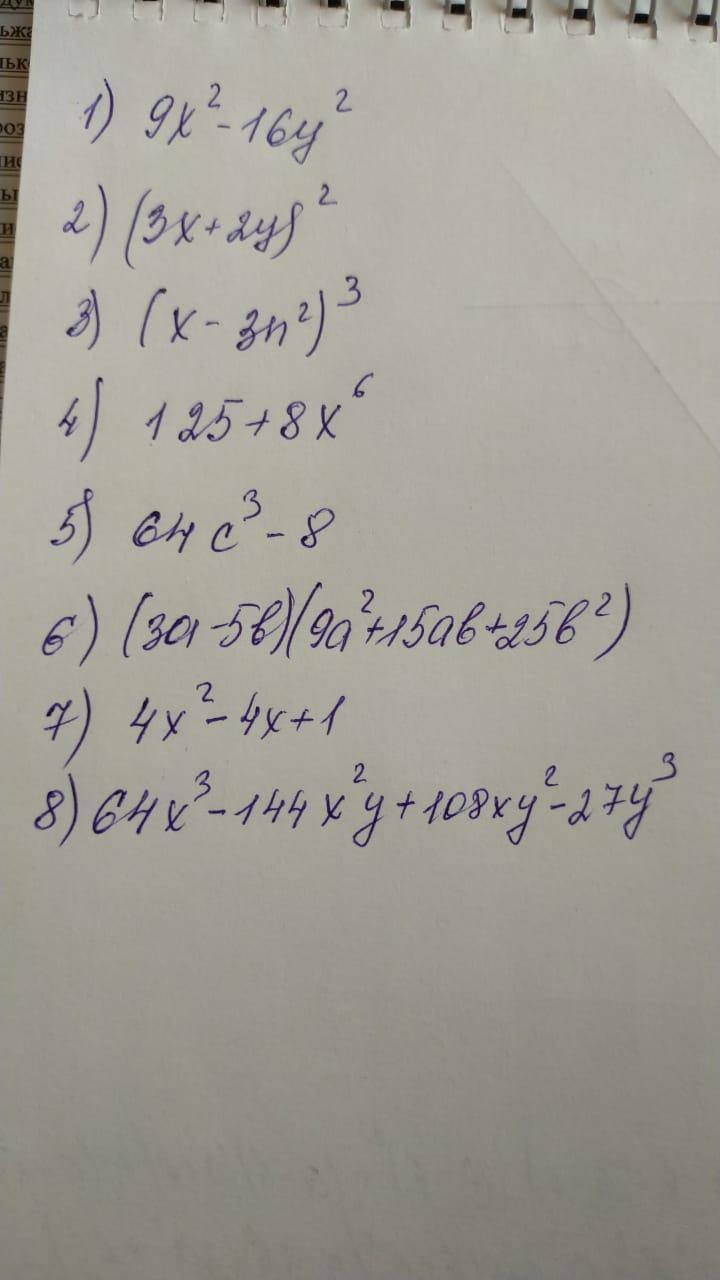 1) 9x² - 16y²
2) (3x + 2y)²
3) (x - 3n²)³
4) 125 + 8x⁶
5) 64c³ - 8
6) (3a - 5b)(9a² + 15ab + 25b²)
7) 4x² - 4x + 1
8) 64x³ - 144x²y + 108xy² - 27y³